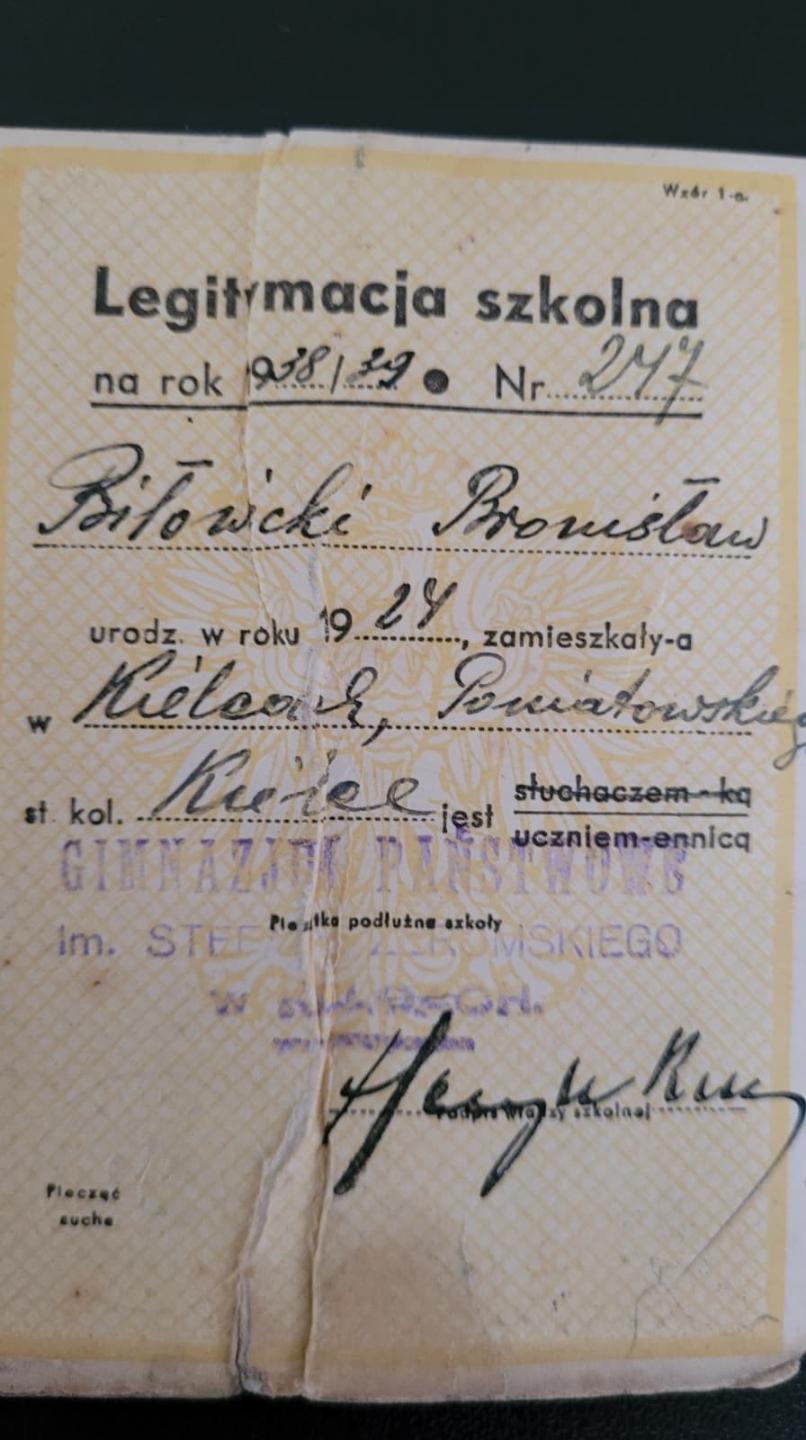 Wzór 1-a.
Legitymacja szkolna
na rok 1938/39 • Nr. 247
Biłowicki Bronisław
urodz. w roku 1924, zamieszkały-a
w Kielcach, Poniatowskiego
st. kol. Kielce jest słuchaczem-ką
uczniem-ennicą
GIMNAZJUM PAŃSTWOWE
Pieczątka podłużna szkoły
im. STEFANA ŻEROMSKIEGO
w
Podpis władzy szkolnej
Pieczęć
sucha